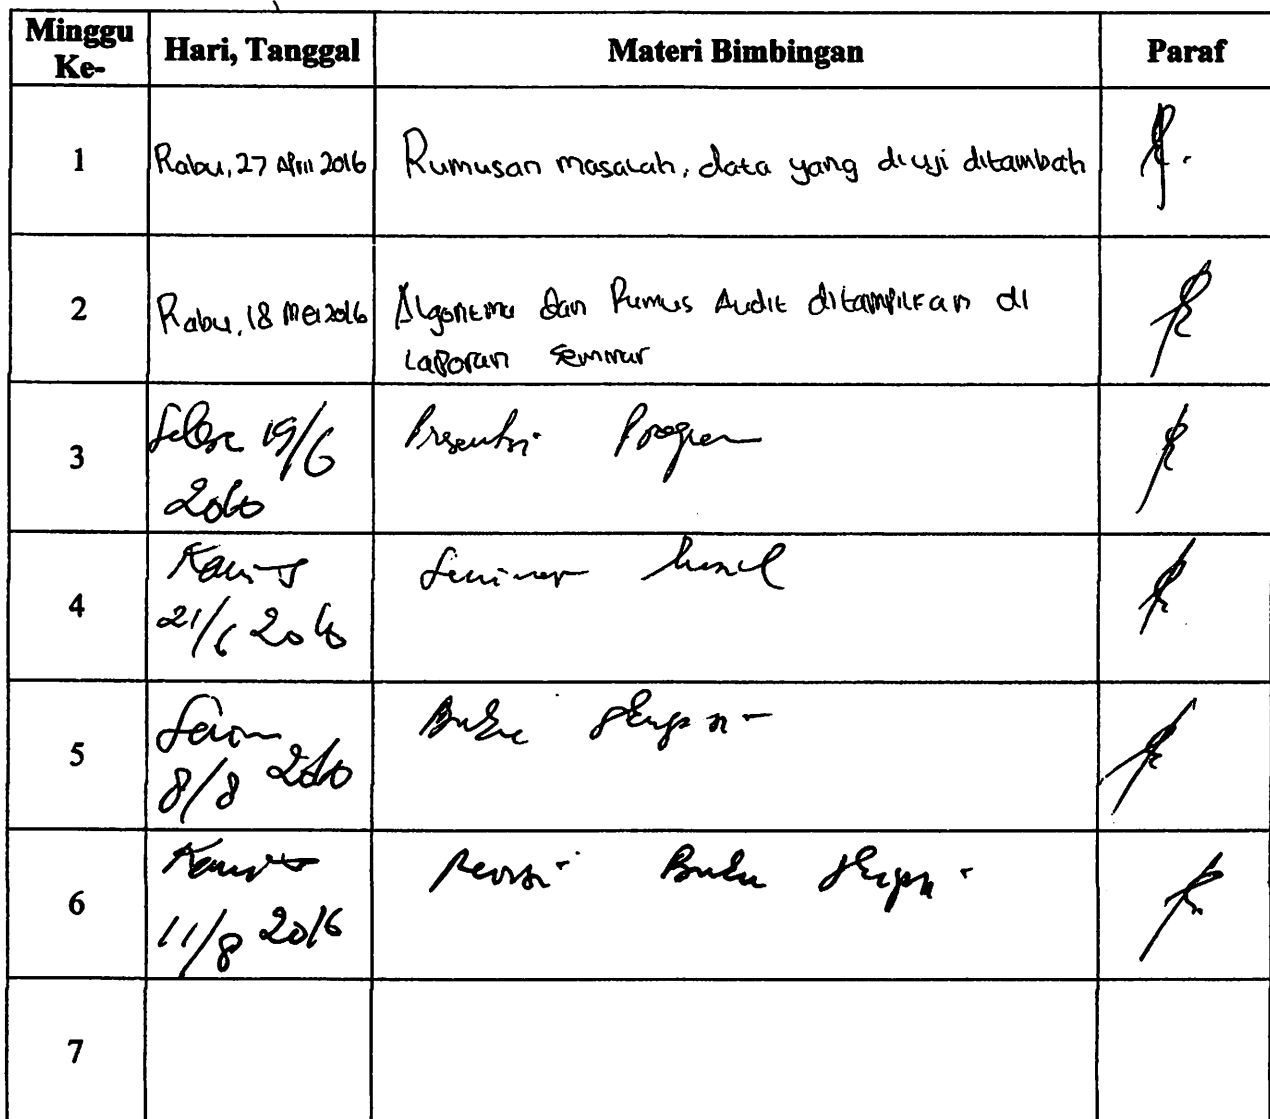 Minggu Ke- Hari, Tanggal Materi Bimbingan Paraf
1 Rabu, 27 April 2016 Rumusan masalah, data yang diuji ditambah
2 Rabu, 18 Mei 2016 Algoritma dan Rumus Audit ditampilkan di
Laporan Seminar
3 Selasa 19/6 Presentasi Program
2016
4 Kamis Seminar hasil
21/6 2016
5 Senin Buku Skripsi
8/8 2016
6 Kamis Revisi Buku Skripsi
11/8 2016
7